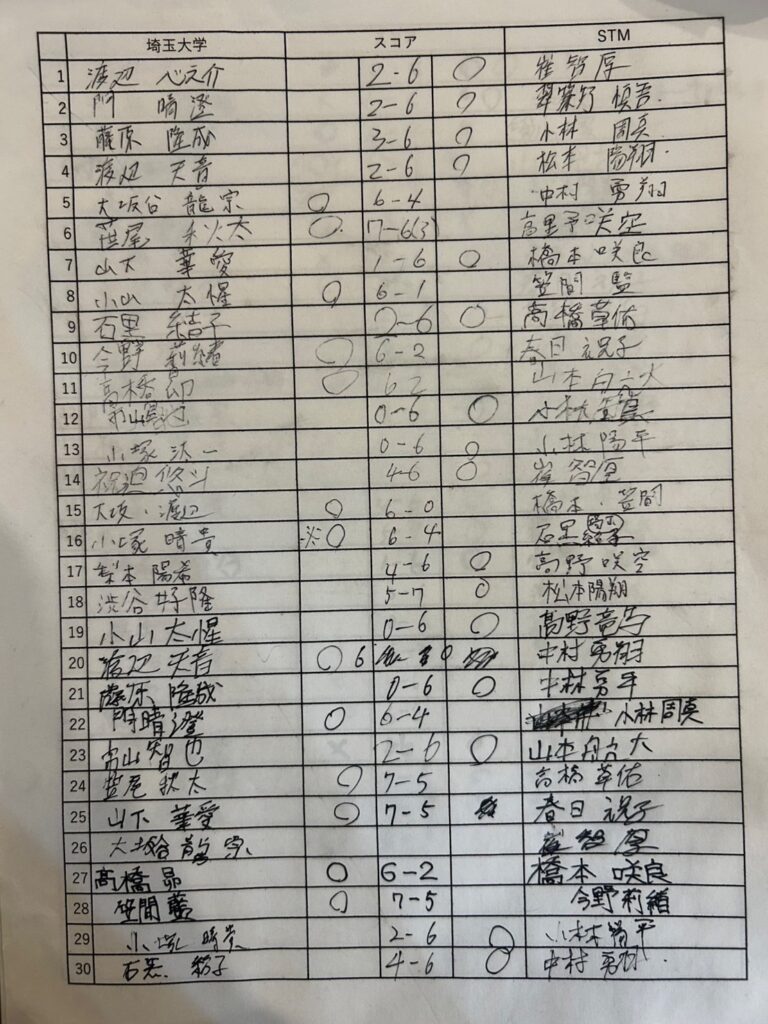 埼玉大学 スコア STM
1 渡辺 心之介 2-6 ○ 崔智厚
2 門 晴澄 2-6 ○ 慎吾
3 藤原 隆成 3-6 ○ 小林 周真
4 渡辺 天音 2-6 ○ 松本 陽翔
5 大坂谷 龍宗 ○ 6-4 中村 勇翔
6 秋太 ○ 7-6(3) 高野咲空
7 山下 華愛 1-6 ○ 橋本 咲良
8 小山 太惺 ○ 6-1 笠間 藍
9 石黒 結子 ○ 高橋草佑
10 今野 莉緒 ○ 6-2 春日 祝子
11 高橋昴 ○ 6 2 山本
12 0-6 ○ 小林
13 小塚 汰一 0-6 ○ 小林陽平
14 祝迫 悠斗 4-6 ○ 崔智厚
15 大坂・渡辺 ○ 6-0 橋本・笠間
16 小塚 晴貴 ※○ 6-4 石黒
17 梨本 陽希 4-6 ○ 高野咲空
18 渋谷 5-7 ○ 松本陽翔
19 小山太惺 0-6 ○ 髙野竜弓
20 渡辺 天音 ○ 6 0 中村勇翔
21 藤原 隆成 0-6 ○
22 門晴澄 ○ 6-4 小林周真
23 智也 2-6 ○ 山本
24 秋太 ○ 7-5 高橋 草佑
25 山下 華愛 ○ 7-5 春日 祝子
26 大坂谷 龍宗 崔智厚
27 高橋 昴 ○ 6-2 橋本 咲良
28 笠間藍 ○ 7-5 今野莉緒
29 小塚 晴貴 2-6 ○ 小林陽平
30 石黒 結子 4-6 ○ 中村 勇翔